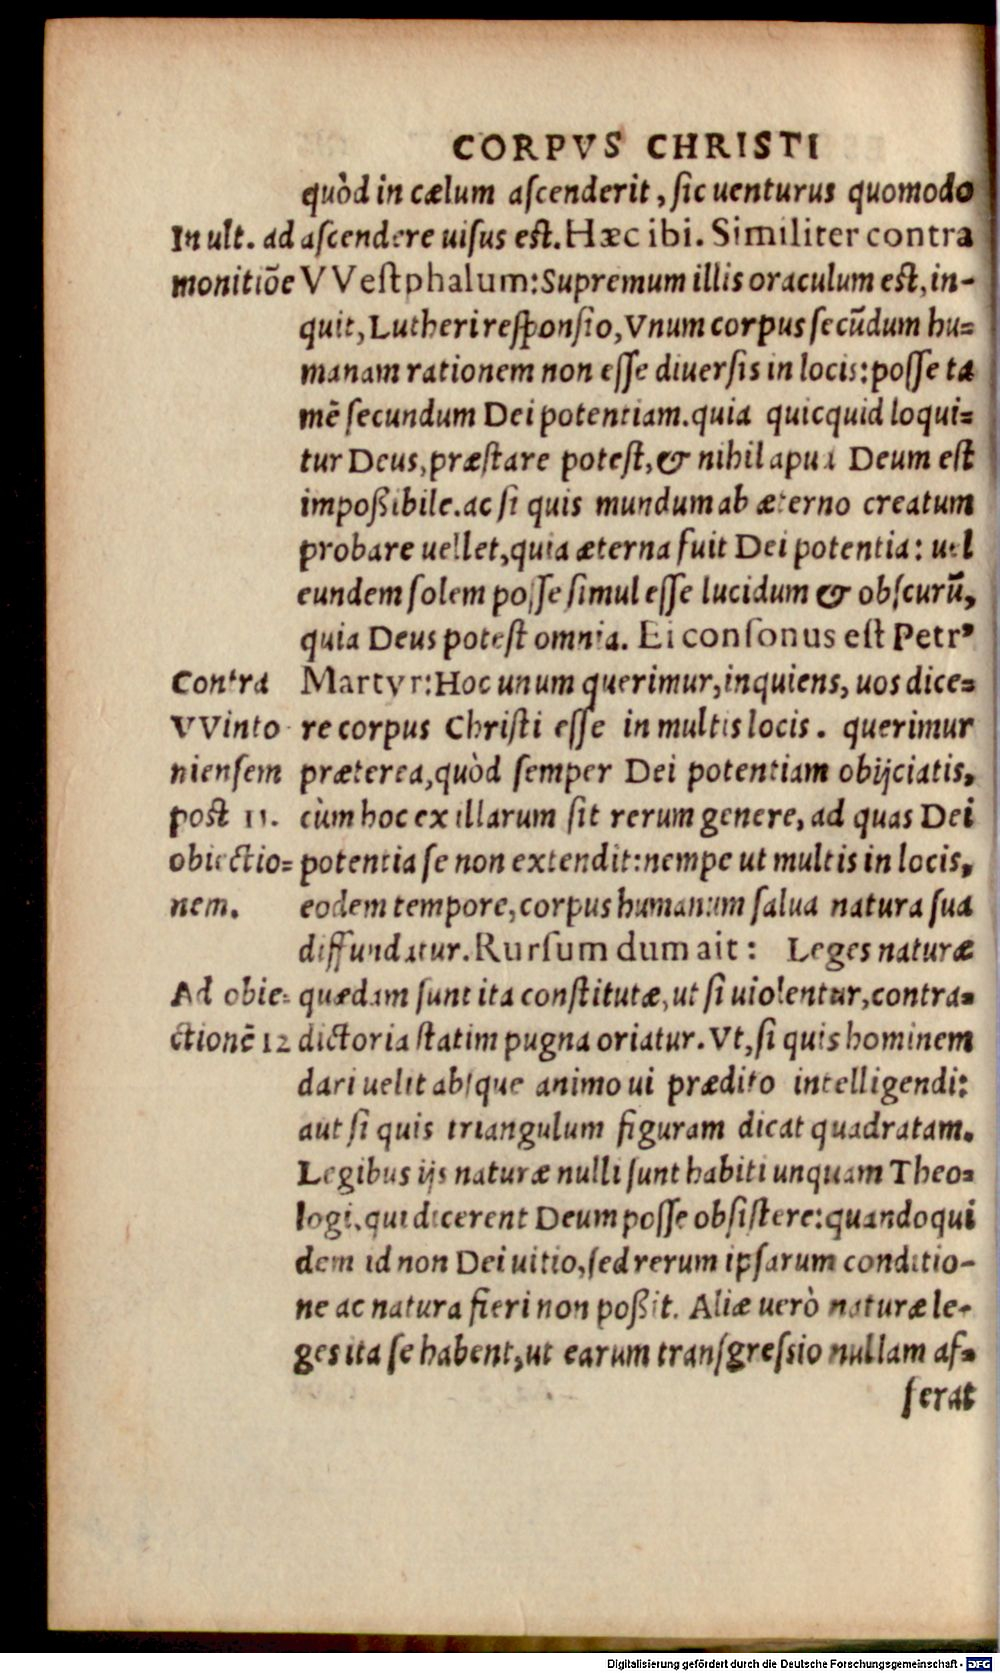 CORPVS CHRISTI
quòd in cælum ascenderit, sic uenturus quomodo
In ult. ad ascendere uisus est. Hæc ibi. Similiter contra
monitiõe VVestphalum: Supremum illis oraculum est, in-
quit, Lutheri responsio, Vnum corpus secũdum hu=
manam rationem non esse diuersis in locis: posse ta
mẽ secundum Dei potentiam. quia quicquid loqui=
tur Deus, præstare potest, & nihil apud Deum est
impoßibile. ac si quis mundum ab æterno creatum
probare uellet, quia æterna fuit Dei potentia: uel
eundem solem posse simul esse lucidum & obscurũ,
quia Deus potest omnia. Ei consonus est Petr⁹
Contra Martyr: Hoc unum querimur, inquiens, uos dice=
VVinto re corpus Christi esse in multis locis. querimur
niensem præterea, quòd semper Dei potentiam obijciatis,
post 11. cùm hoc ex illarum sit rerum genere, ad quas Dei
obiectio= potentia se non extendit: nempe ut multis in locis,
nem. eodem tempore, corpus humanum salua natura sua
diffundatur. Rursum dum ait: Leges naturæ
Ad obie= quædam sunt ita constitutæ, ut si uiolentur, contra=
ctionẽ 12 dictoria statim pugna oriatur. Vt, si quis hominem
dari uelit absque animo ui prædito intelligendi:
aut si quis triangulum figuram dicat quadratam.
Legibus ijs naturæ nulli sunt habiti unquam Theo=
logi, qui dicerent Deum posse obsistere: quandoqui
dem id non Dei uitio, sed rerum ipsarum conditio-
ne ac natura fieri non poßit. Aliæ uerò naturæ le-
ges ita se habent, ut earum transgressio nullam af=
ferat
Digitalisierung gefördert durch die Deutsche Forschungsgemeinschaft - DFG